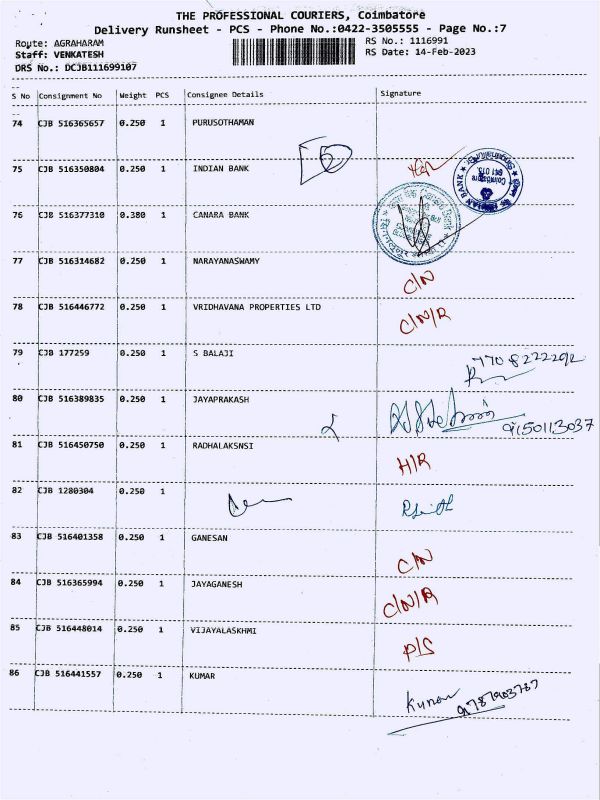 THE PROFESSIONAL COURIERS, Coimbatore
Delivery Runsheet - PCS - Phone No.:0422-3505555 - Page No.:7
Route: AGRAHARAM RS No.: 1116991
Staff: VENKATESH RS Date: 14-Feb-2023
DRS No.: DCJB111699107
S No Consignment No Weight PCS Consignee Details Signature
74 CJB 516365657 0.250 1 PURUSOTHAMAN
75 CJB 516350804 0.250 1 INDIAN BANK
76 CJB 516377310 0.380 1 CANARA BANK
77 CJB 516314682 0.250 1 NARAYANASWAMY C/N
78 CJB 516446772 0.250 1 VRIDHAVANA PROPERTIES LTD C/N/R
79 CJB 177259 0.250 1 S BALAJI
80 CJB 516389835 0.250 1 JAYAPRAKASH
9150113037
81 CJB 516450750 0.250 1 RADHALAKSNSI H/R
82 CJB 1280304 0.250 1
83 CJB 516401358 0.250 1 GANESAN C/N
84 CJB 516365994 0.250 1 JAYAGANESH C/N/R
85 CJB 516448014 0.250 1 VIJAYALASKHMI P/S
86 CJB 516441557 0.250 1 KUMAR Kumar
9787903787